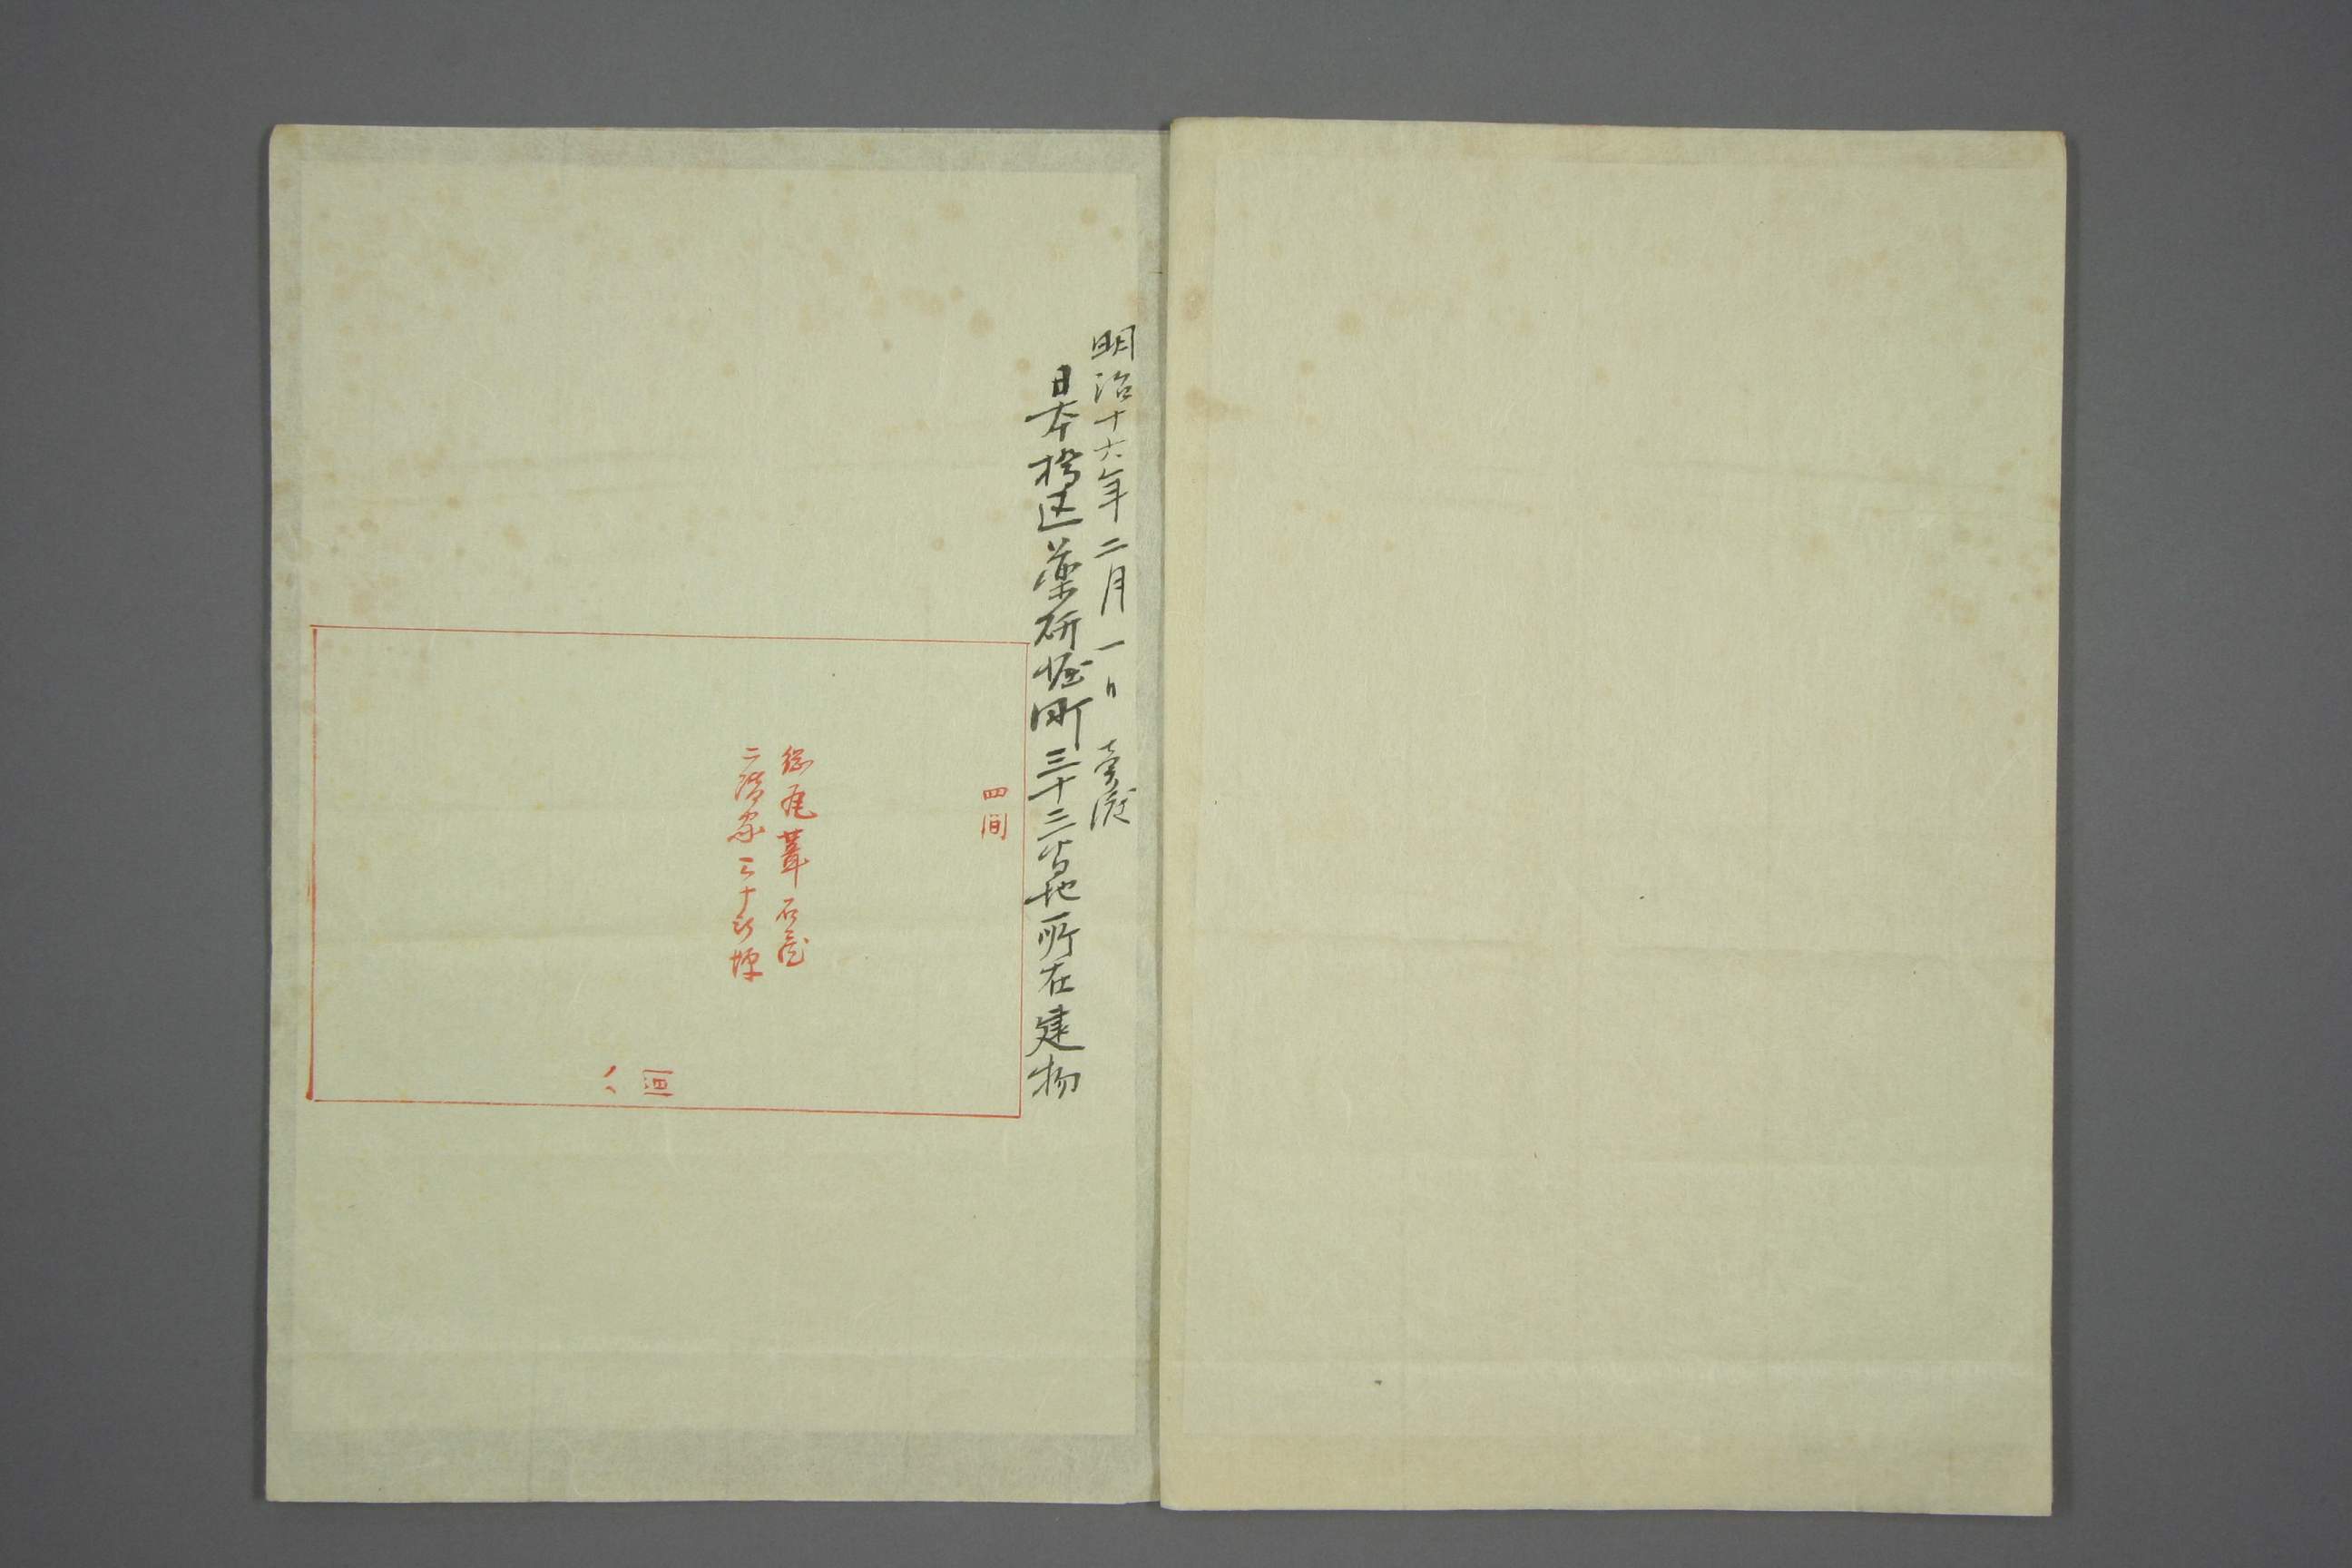 明治十六年二月一日 売渡
日本橋区薬研堀町三十三番地所在建物
四間
総瓦葺石
二階家三十弐坪
八間